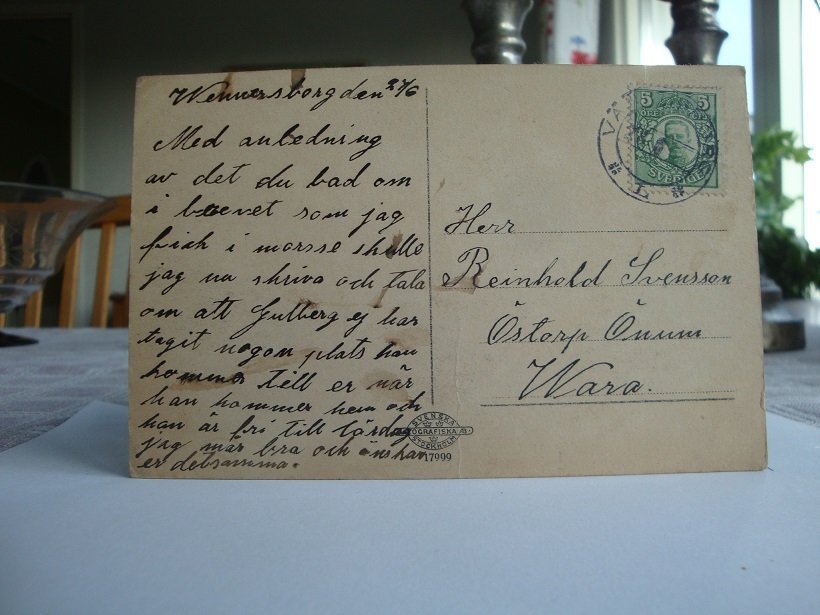 Wennersborg den 27/6
Med anledning
av det du bad om
i brevet som jag
fick i morsse skulle
jag nu skriva och tala
om att Gulberg ej har
tagit nogon plats han
kommer till er när
han kommer hem och
han är fri till lördag
jag mår bra och önskar
er detsamma.
Herr
Reinhold Svensson
Östorp Önum
Wara.
5 5
ÖRE
SVERIGE
VÄN
SVENSKA
STOCKHOLM
17999